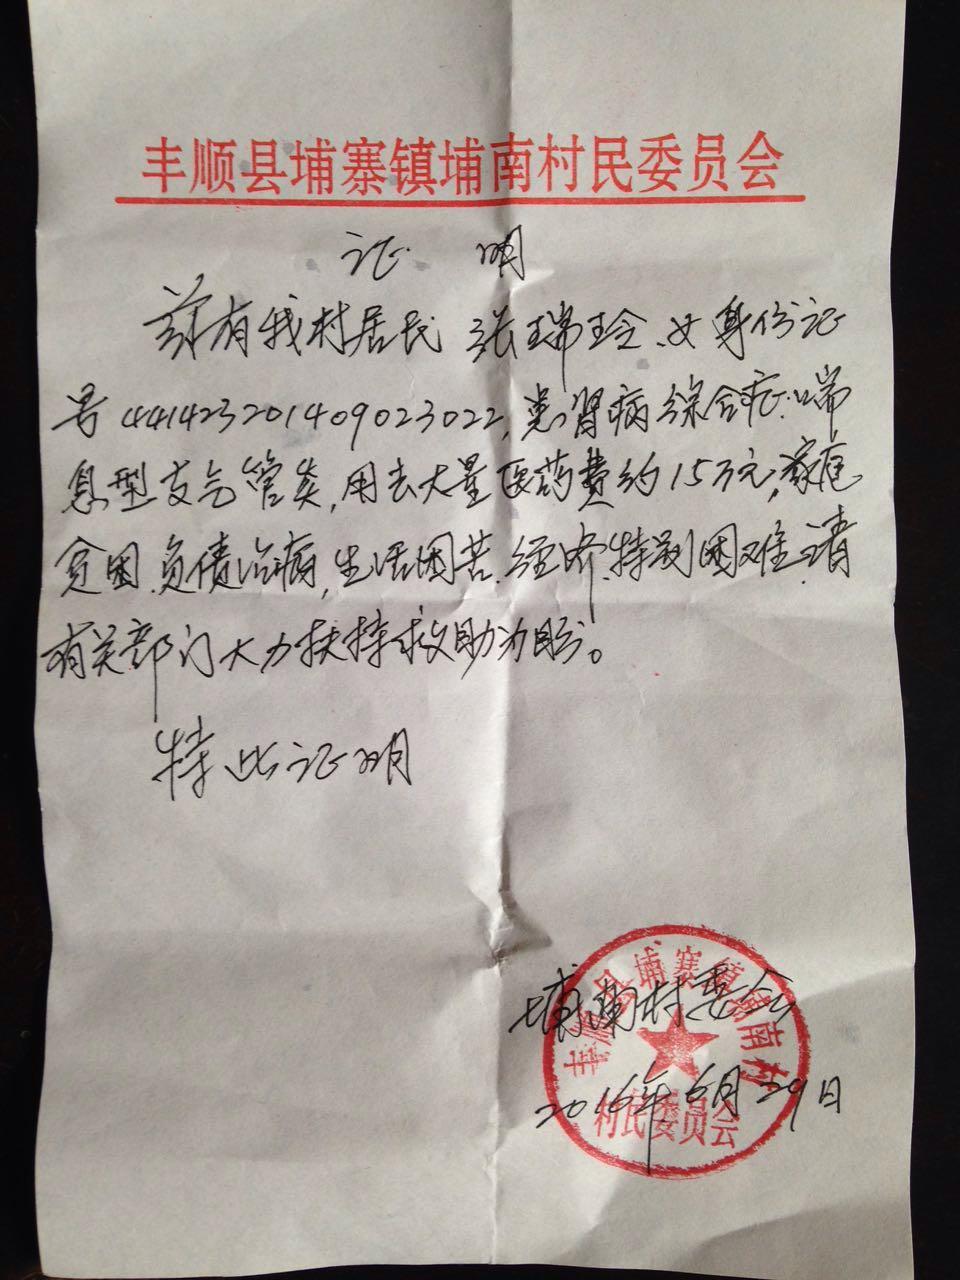 丰顺县埔寨镇埔南村民委员会
证明
兹有我村居民张瑞玲、女身份证
号441423201409023022,患肾病综合症、喘
息型支气管炎,用去大量医药费约15万元,家庭
贫困、负债治病,生活困苦、经济特别困难、请
有关部门大力扶持救助为盼。
特此证明
埔南村委会
2016年6月29日
丰顺县埔寨镇埔南村
村民委员会